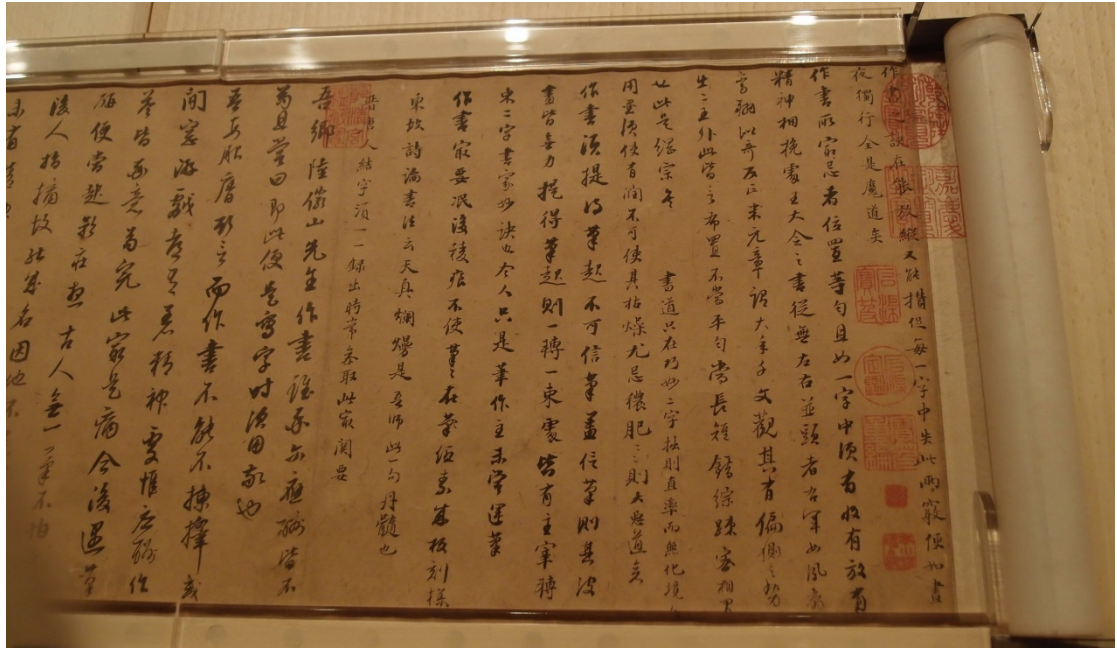 作書之訣在能放縱又能攢捉每一字中失此兩竅便如晝
夜獨行全是魔道矣
作書所最忌者位置等勻且如一字中須有收有放有
精神相挽處王大令之書從無左右並頭者右軍如鳳翥
鸞翔似奇反正米元章謂大年千文觀其有偏側之勢
出二王外此皆言布置不當平勻當長短錯綜疎密相間
也此是 書道只在巧妙二字拙則直率而無化境矣
用墨須使有潤不可使其枯燥尤忌穠肥肥則大惡道矣
作書須提得筆起不可信筆蓋信筆則其波
畫皆無力提得筆起則一轉一束處皆有主宰轉
束二字書家妙訣也今人只是筆作主未嘗運筆
作書最要泯沒稜痕不使筆筆在紙素成板刻樣
東坡詩論書法云天真爛熳是吾師此一句丹髓也
晉唐人結字須一一錄出時常參取此最關要
吾鄉陸儼山先生作書雖率爾應酬皆不
苟且嘗曰即此便是寫字時須用敬也
吾每服膺斯言而作書不能不揀擇或
閒窓游戲都有著精神處惟應酬作
答皆率意苟完此最是病今後遇筆
研便當起矜莊想古人無一筆不怕
後人指摘故能成名因地不